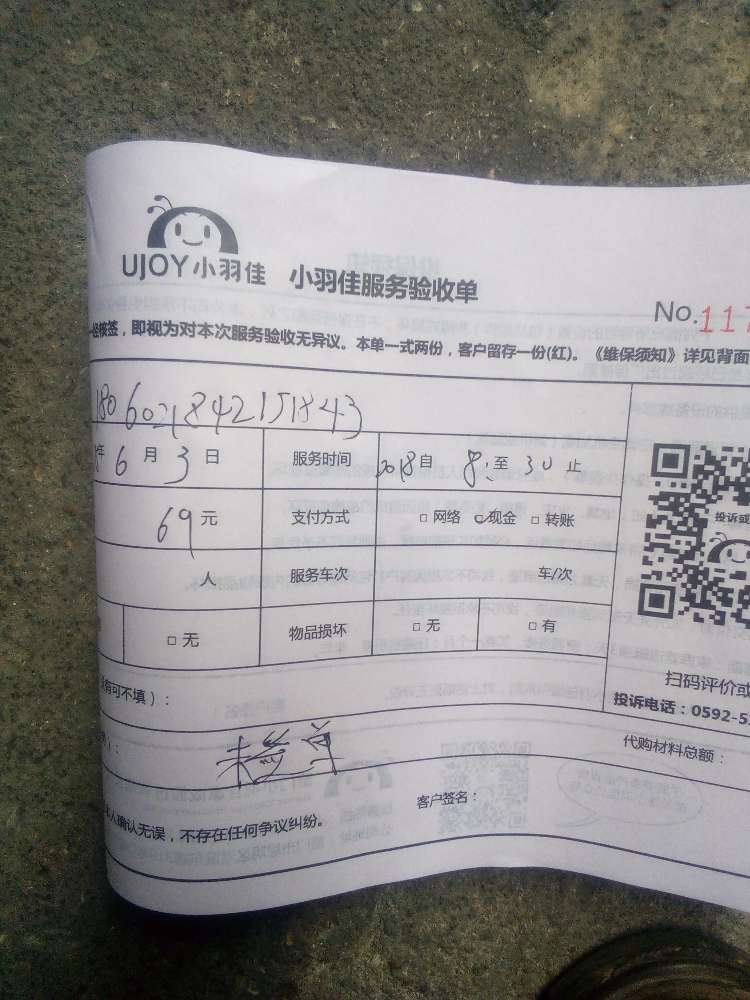 UJOY小羽佳 小羽佳服务验收单
No.117
经核签，即视为对本次服务验收无异议。本单一式两份，客户留存一份(红)。《维保须知》详见背面
1806021842151843
年6月3日 服务时间 2018自 8: 至 30 止
69元 支付方式 □网络 现金 □转账
人 服务车次 车/次
□无 物品损坏 □无 □有
投诉或
没有可不填）：
扫码评价或
投诉电话：0592-5
）：
未签单
代购材料总额：
人确认无误，不存在任何争议纠纷。 客户签名：